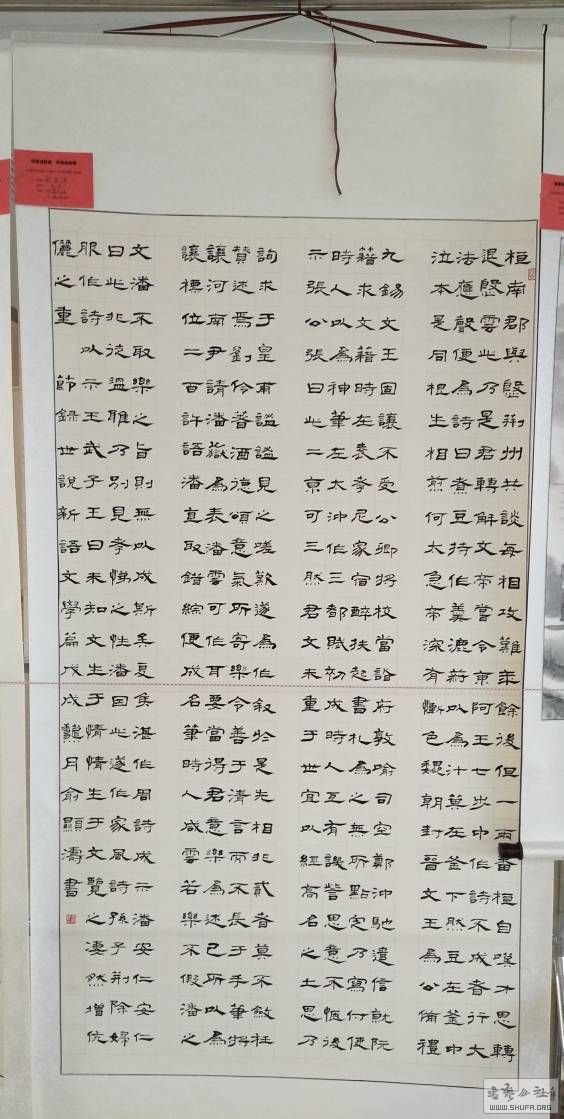 桓南郡與殷荊州共談每相攻難年餘後但一兩番桓自嘆才思轉
退殷雲此乃是君轉解文帝嘗令東阿王七步中作詩不成者行大
法應聲便為詩曰煮豆持作羹漉菽以為汁萁在釜下然豆在釜中
泣本是同根生相煎何太急帝深有慚色魏朝封晉文王為公備禮
九錫文王固讓不受公卿將校當詣府敦喻司空鄭沖馳遣信就阮
籍求文籍時在袁孝尼家宿醉扶起書札為之無所點定乃寫付使
時人以為神筆左太沖作三都賦初成時人互有譏訾思意不愜後
示張公張曰此二京可三然君文未重于世宜以經高名之士思乃
詢求于皇甫謐謐見之嗟歎遂為作敘於是先相非貳者莫不斂衽
贊述焉劉伶著酒德頌意氣所寄樂令善于清言而不長于手筆將
讓河南尹請潘嶽為表潘雲可作耳要當得君意樂為述己所以為
讓標位二百許語潘直取錯綜便成名筆時人咸雲若樂不假潘之
文潘不取樂之旨則無以成斯矣夏侯湛作周詩成示潘安仁安仁
曰此非徒溫雅乃別見孝悌之性潘因此遂作家風詩孫子荊除婦
服作詩以示王武子王曰未知文生于情情生于文覽之淒然增伉
儷之重 節錄世說新語文學篇戊戌龝月俞顯濤書
書藝公社
WWW.SHUFA.ORG